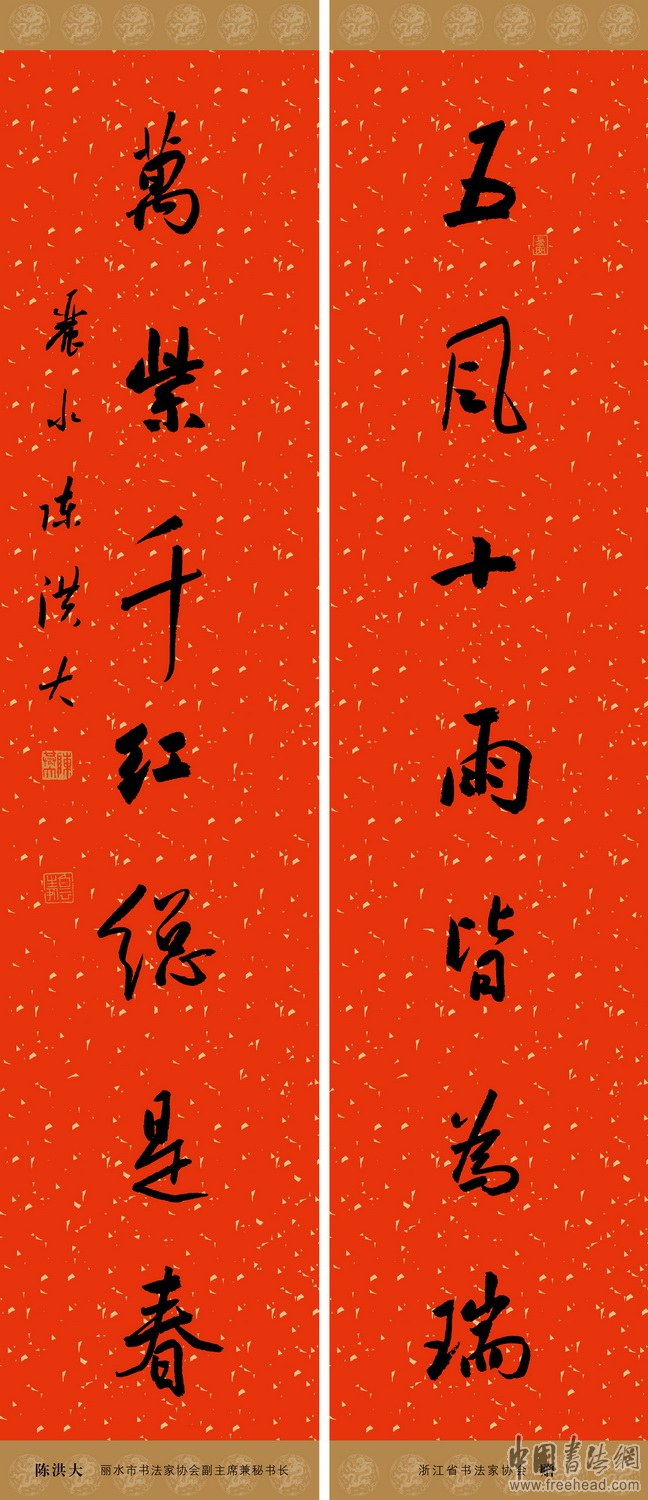 五风十雨皆為瑞
萬紫千红總是春
麗水陈洪大
陈洪大 丽水市书法家协会副主席兼秘书长
浙江省书法家协会 赠
中国书法網
www.freehead.com